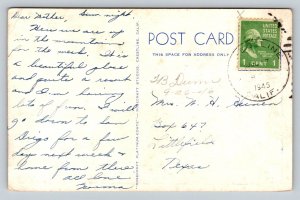 Sun. night.
Dear Mother,
Here we are up
in the mountains
for the week. it is
a beautiful place
and quite a resort
and I'm having
lots of fun. I will
go down to San
Diego for a few
days next week &
home from there
all love
POST CARD
THIS SPACE FOR ADDRESS ONLY
1 CENT 1
1945
CALIF.
Mrs. W. H.
Box 647
Littlefield
Texas